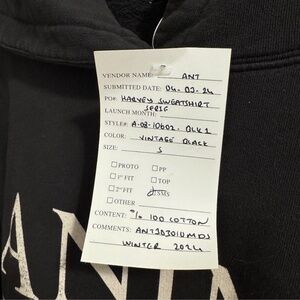 VENDOR NAME: ANT
SUBMITTED DATE: 04.03.24
PO#: HARVEY SWEATSHIRT
SERIF
LAUNCH MONTH:
STYLE#: A-08-10602.BLK1
COLOR: VINTAGE BLACK
SIZE: S
☐ PROTO ☐ PP
☐ 1ST FIT ☐ TOP
☐ 2ND FIT ☑ SMS
☐ OTHER
CONTENT: % 100 COTTON
COMMENTS:
WINTER 2024
ANIN